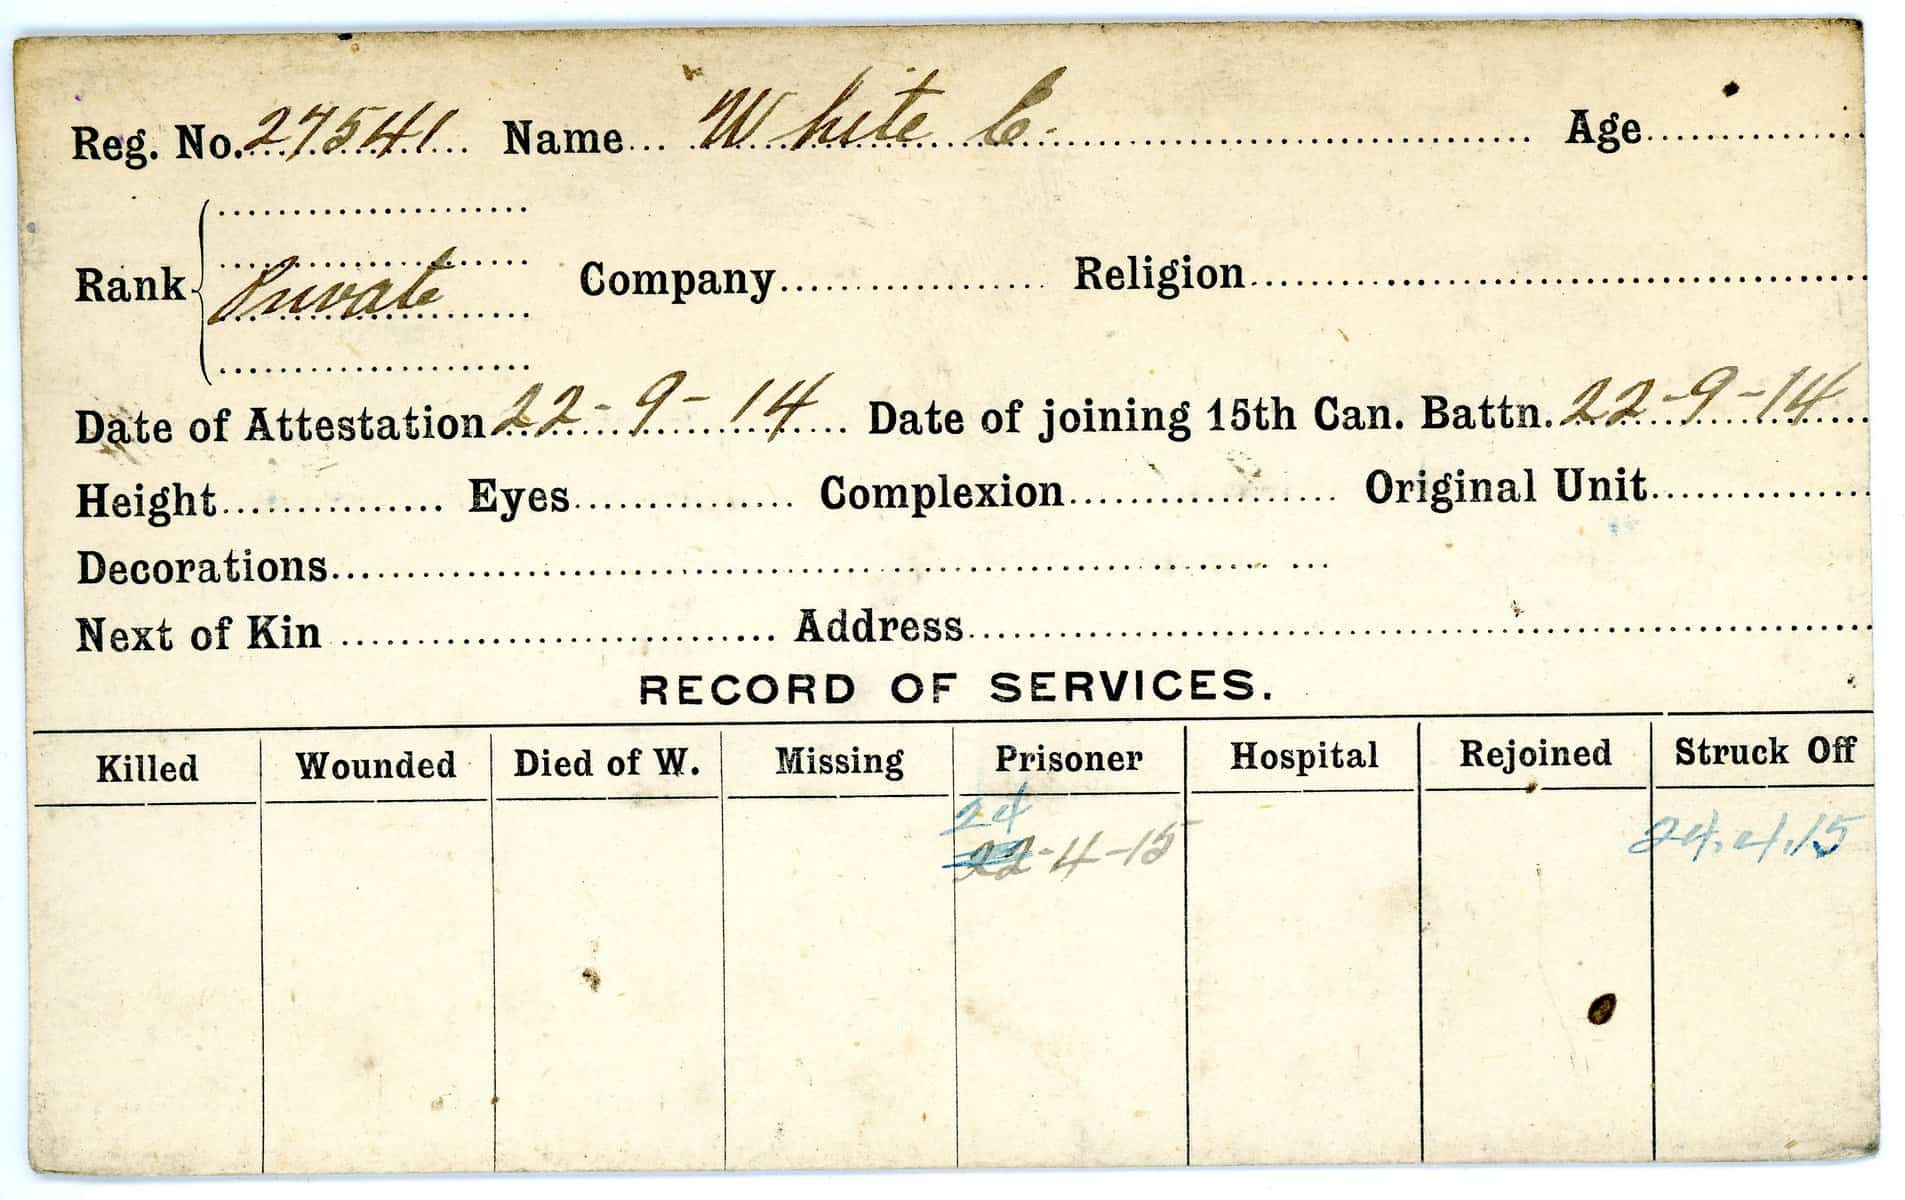 Reg. No. 27541 Name White C. Age
Rank Private Company Religion
Date of Attestation 22-9-14 Date of joining 15th Can. Battn. 22-9-14
Height Eyes Complexion Original Unit
Decorations
Next of Kin Address
RECORD OF SERVICES.
Killed Wounded Died of W. Missing Prisoner Hospital Rejoined Struck Off
24
22-4-15 24.4.15